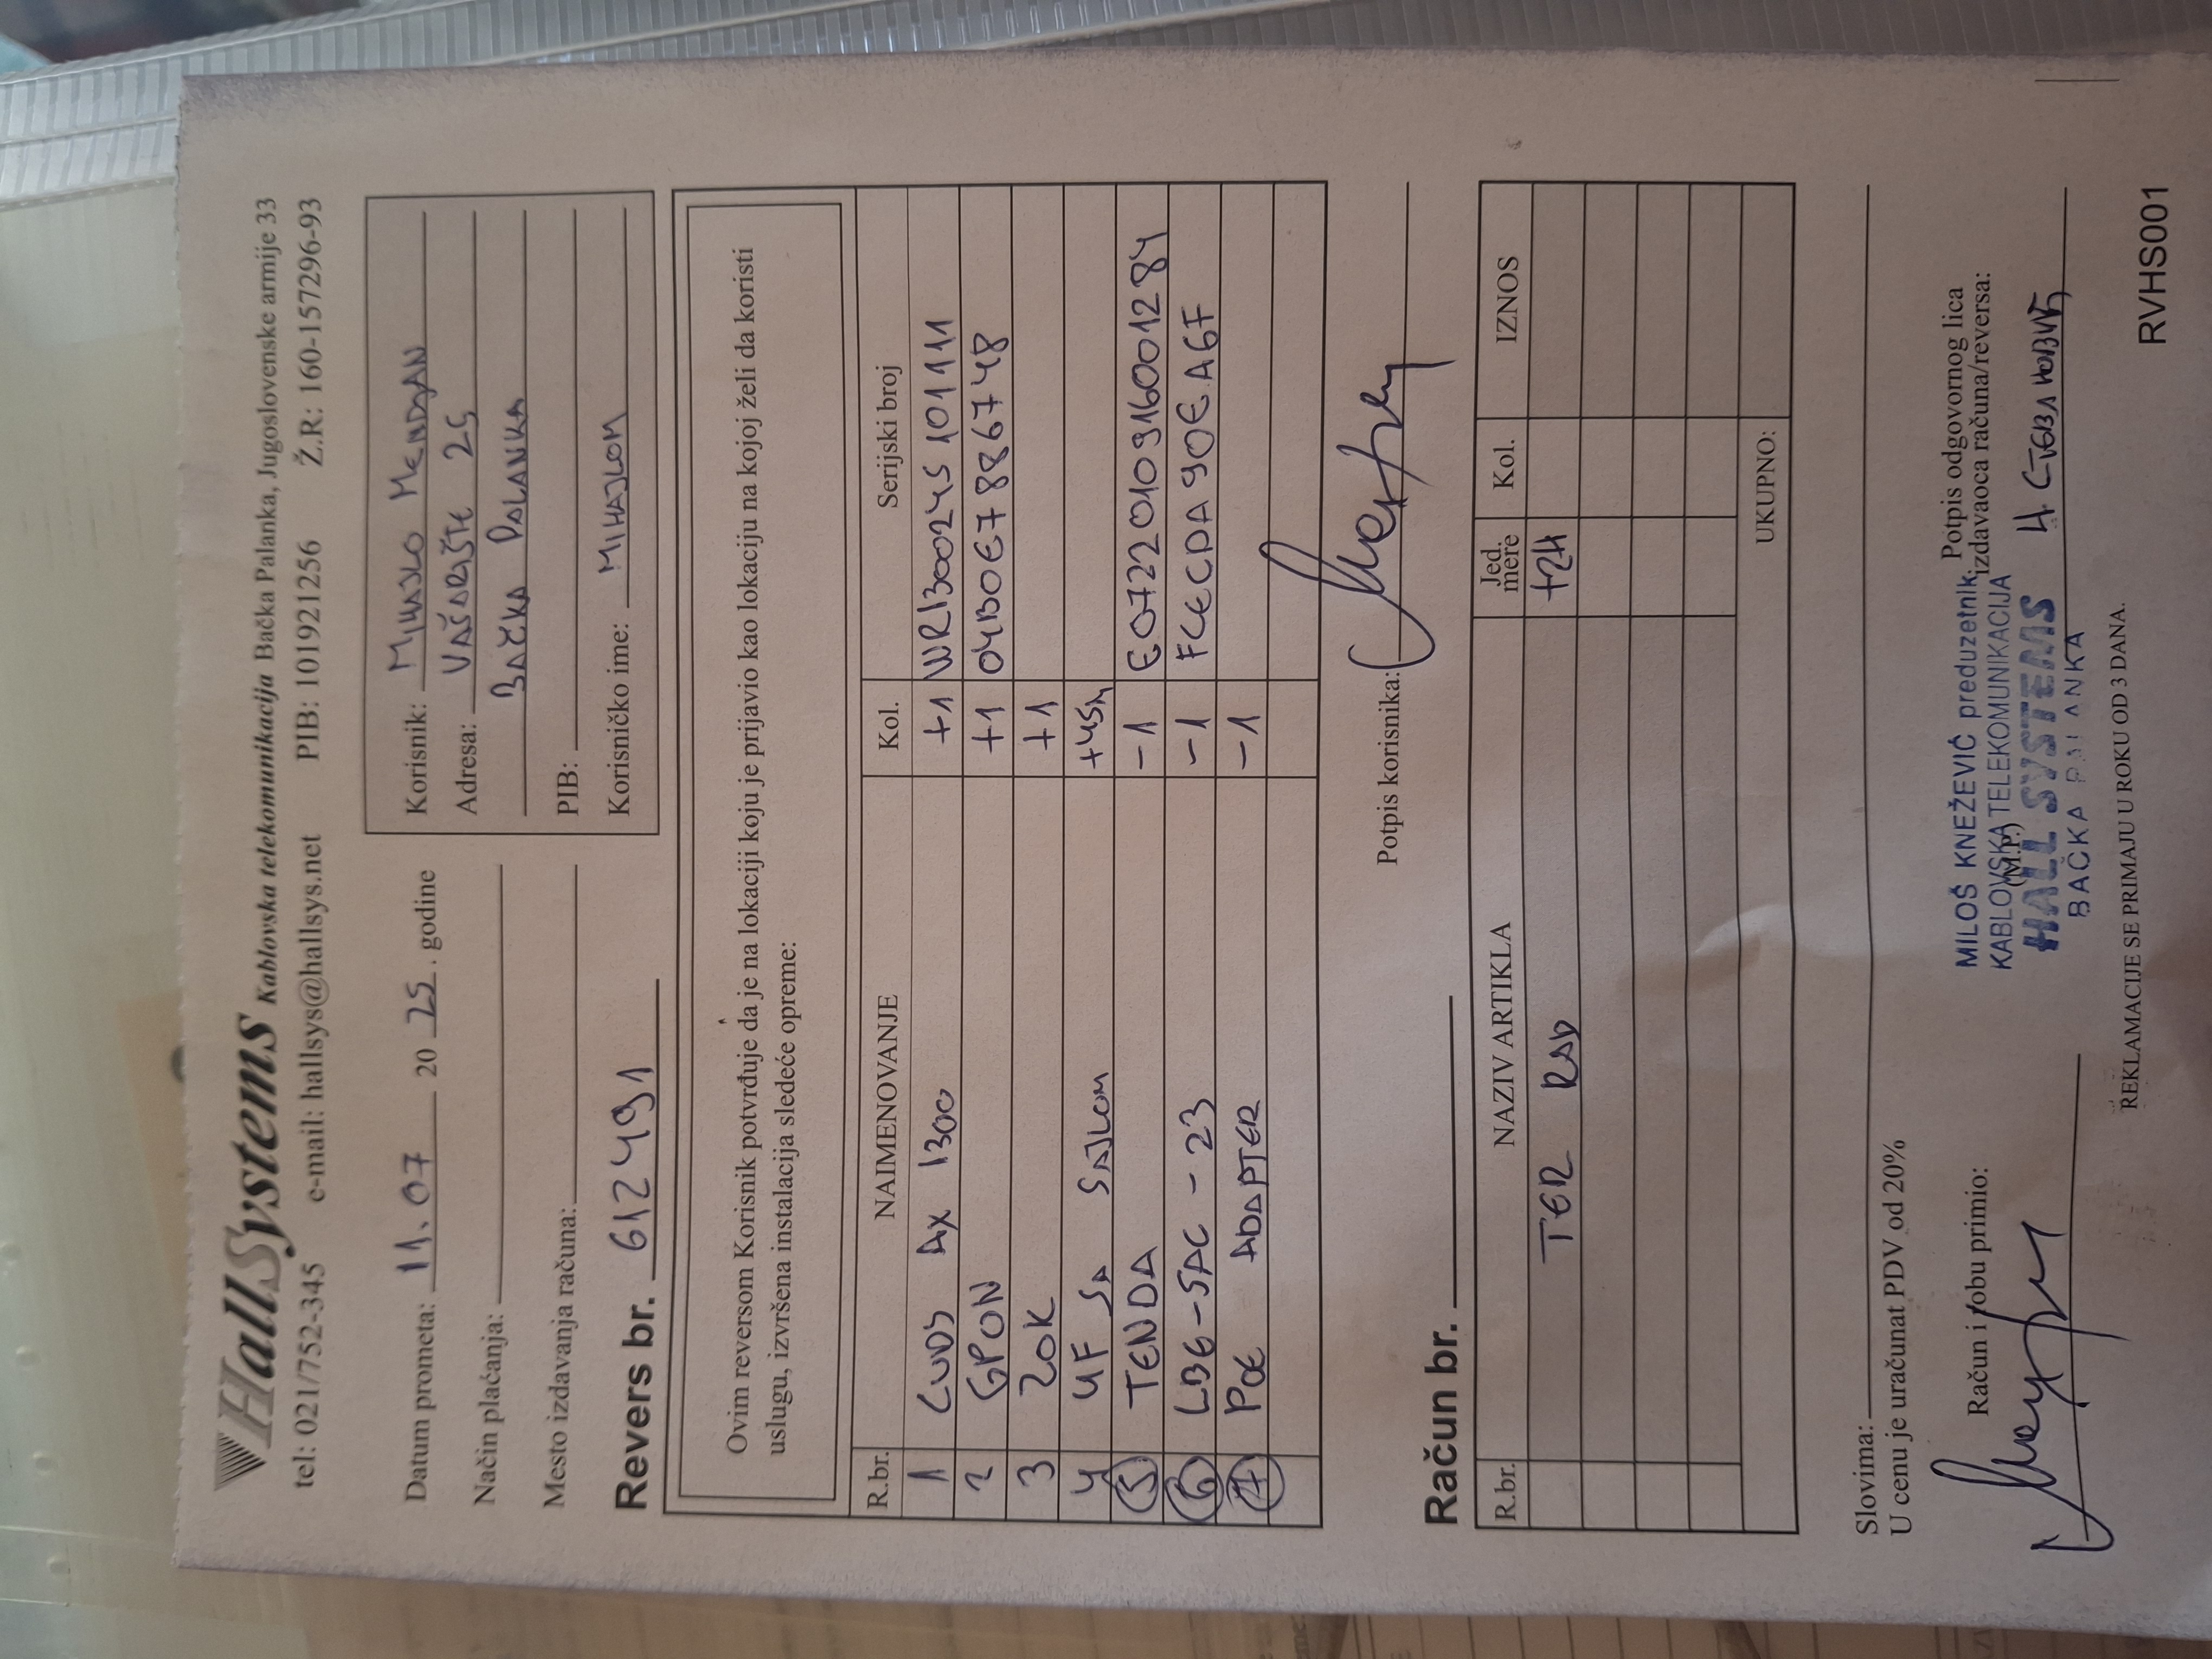 HallSystems Kablovska telekomunikacija Bačka Palanka, Jugoslovenske armije 33
tel: 021/752-345 e-mail: hallsys@hallsys.net PIB: 101921256 Ž.R: 160-157296-93
Datum prometa: 11.07 20 25. godine
Način plaćanja:
Mesto izdavanja računa:
Revers br. 612491
Korisnik: MIHAJLO MENDJAN
Adresa: VAŠARIŠTE 25
BAČKA PALANKA
PIB:
Korisničko ime: MIHAJLOM
Ovim reversom Korisnik potvrđuje da je na lokaciji koju je prijavio kao lokaciju na kojoj želi da koristi
uslugu, izvršena instalacija sledeće opreme:
R.br. NAIMENOVANJE Kol. Serijski broj
1 CUDY AX 1300 +1 WR1300245101111
2 GPON +1 04B0E7886748
3 ZOK +1
4 4F SA SAJLOM +45m
5 TENDA -1 E0722010916001284
6 LBE-5AC-23 -1 FCECDA90EA6F
7 POE ADAPTER -1
Potpis korisnika:
Račun br.
R.br. NAZIV ARTIKLA Jed. mere Kol. IZNOS
TER RAD
UKUPNO:
Slovima:
U cenu je uračunat PDV od 20%
Račun i robu primio:
(M.P.)
MILOŠ KNEŽEVIĆ preduzetnik
KABLOVSKA TELEKOMUNIKACIJA
HALL SYSTEMS
BAČKA PALANKA
Potpis odgovornog lica
izdavaoca računa/reversa:
REKLAMACIJE SE PRIMAJU U ROKU OD 3 DANA.
RVHS001